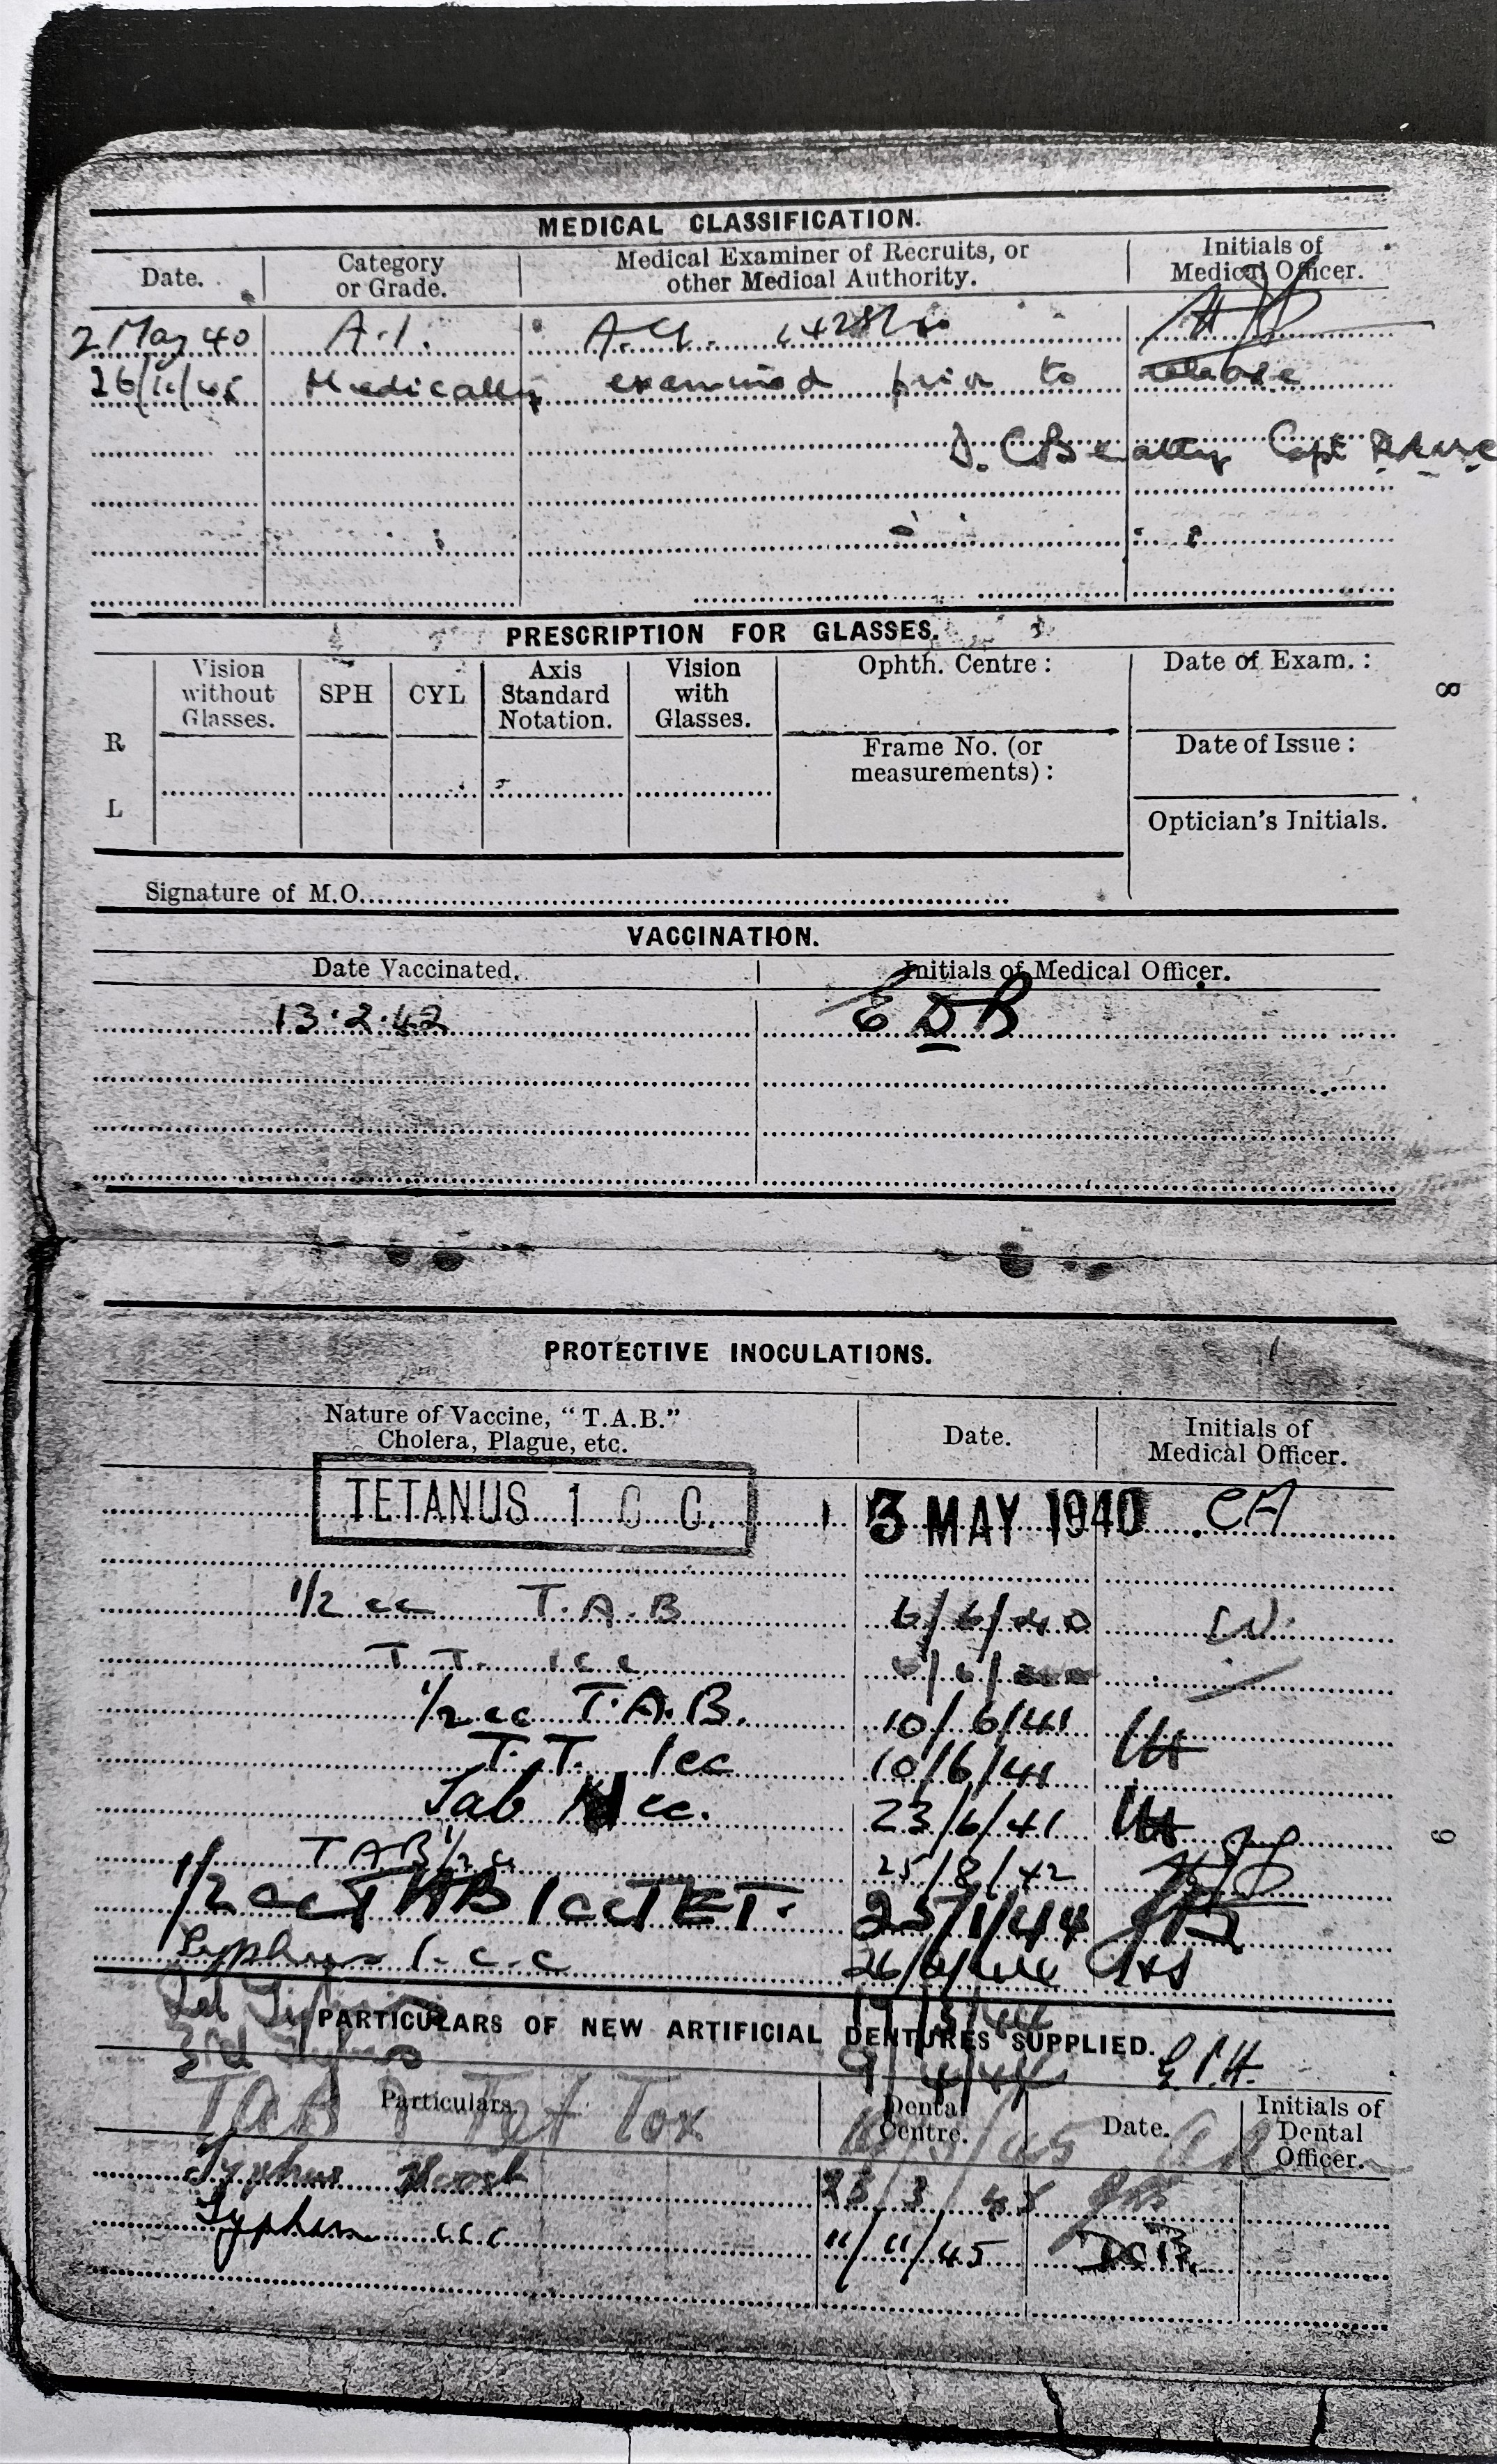 MEDICAL CLASSIFICATION.
Date. Category or Grade. Medical Examiner of Recruits, or other Medical Authority. Initials of Medical Officer.
2 May 40 A.1.
Medically examined prior to release
D. C Beatty Capt RAMC
PRESCRIPTION FOR GLASSES.
Vision without Glasses. SPH CYL Axis Standard Notation. Vision with Glasses. Ophth. Centre : Date of Exam. :
8
R
Frame No. (or measurements) : Date of Issue :
L
Optician's Initials.
Signature of M.O.
VACCINATION.
Date Vaccinated. Initials of Medical Officer.
13.2.42 E D R
PROTECTIVE INOCULATIONS.
Nature of Vaccine, "T.A.B." Cholera, Plague, etc. Date. Initials of Medical Officer.
TETANUS 1 C C. 3 MAY 1940 CA
1/2 cc T.A.B 6/6/40 W.
T.T. 1 c c
1/2 cc T.A.B. 10/6/41
T.T. 1cc 10/6/41
Tab cc. 23/6/41
9
T A B 1/2 c 25/8/42
1/2 cc TAB 1cc TET. 25/1/44
Typhus 1. c. c 26/2/44
2nd Typhus 19/3/44
PARTICULARS OF NEW ARTIFICIAL DENTURES SUPPLIED.
3rd Typhus 9/4/44 E.P.H.
Particulars. Dental Centre. Date. Initials of Dental Officer.
TAB Tet Tox
Typhus 23/3/45
Typhus 11/11/45 DCB.